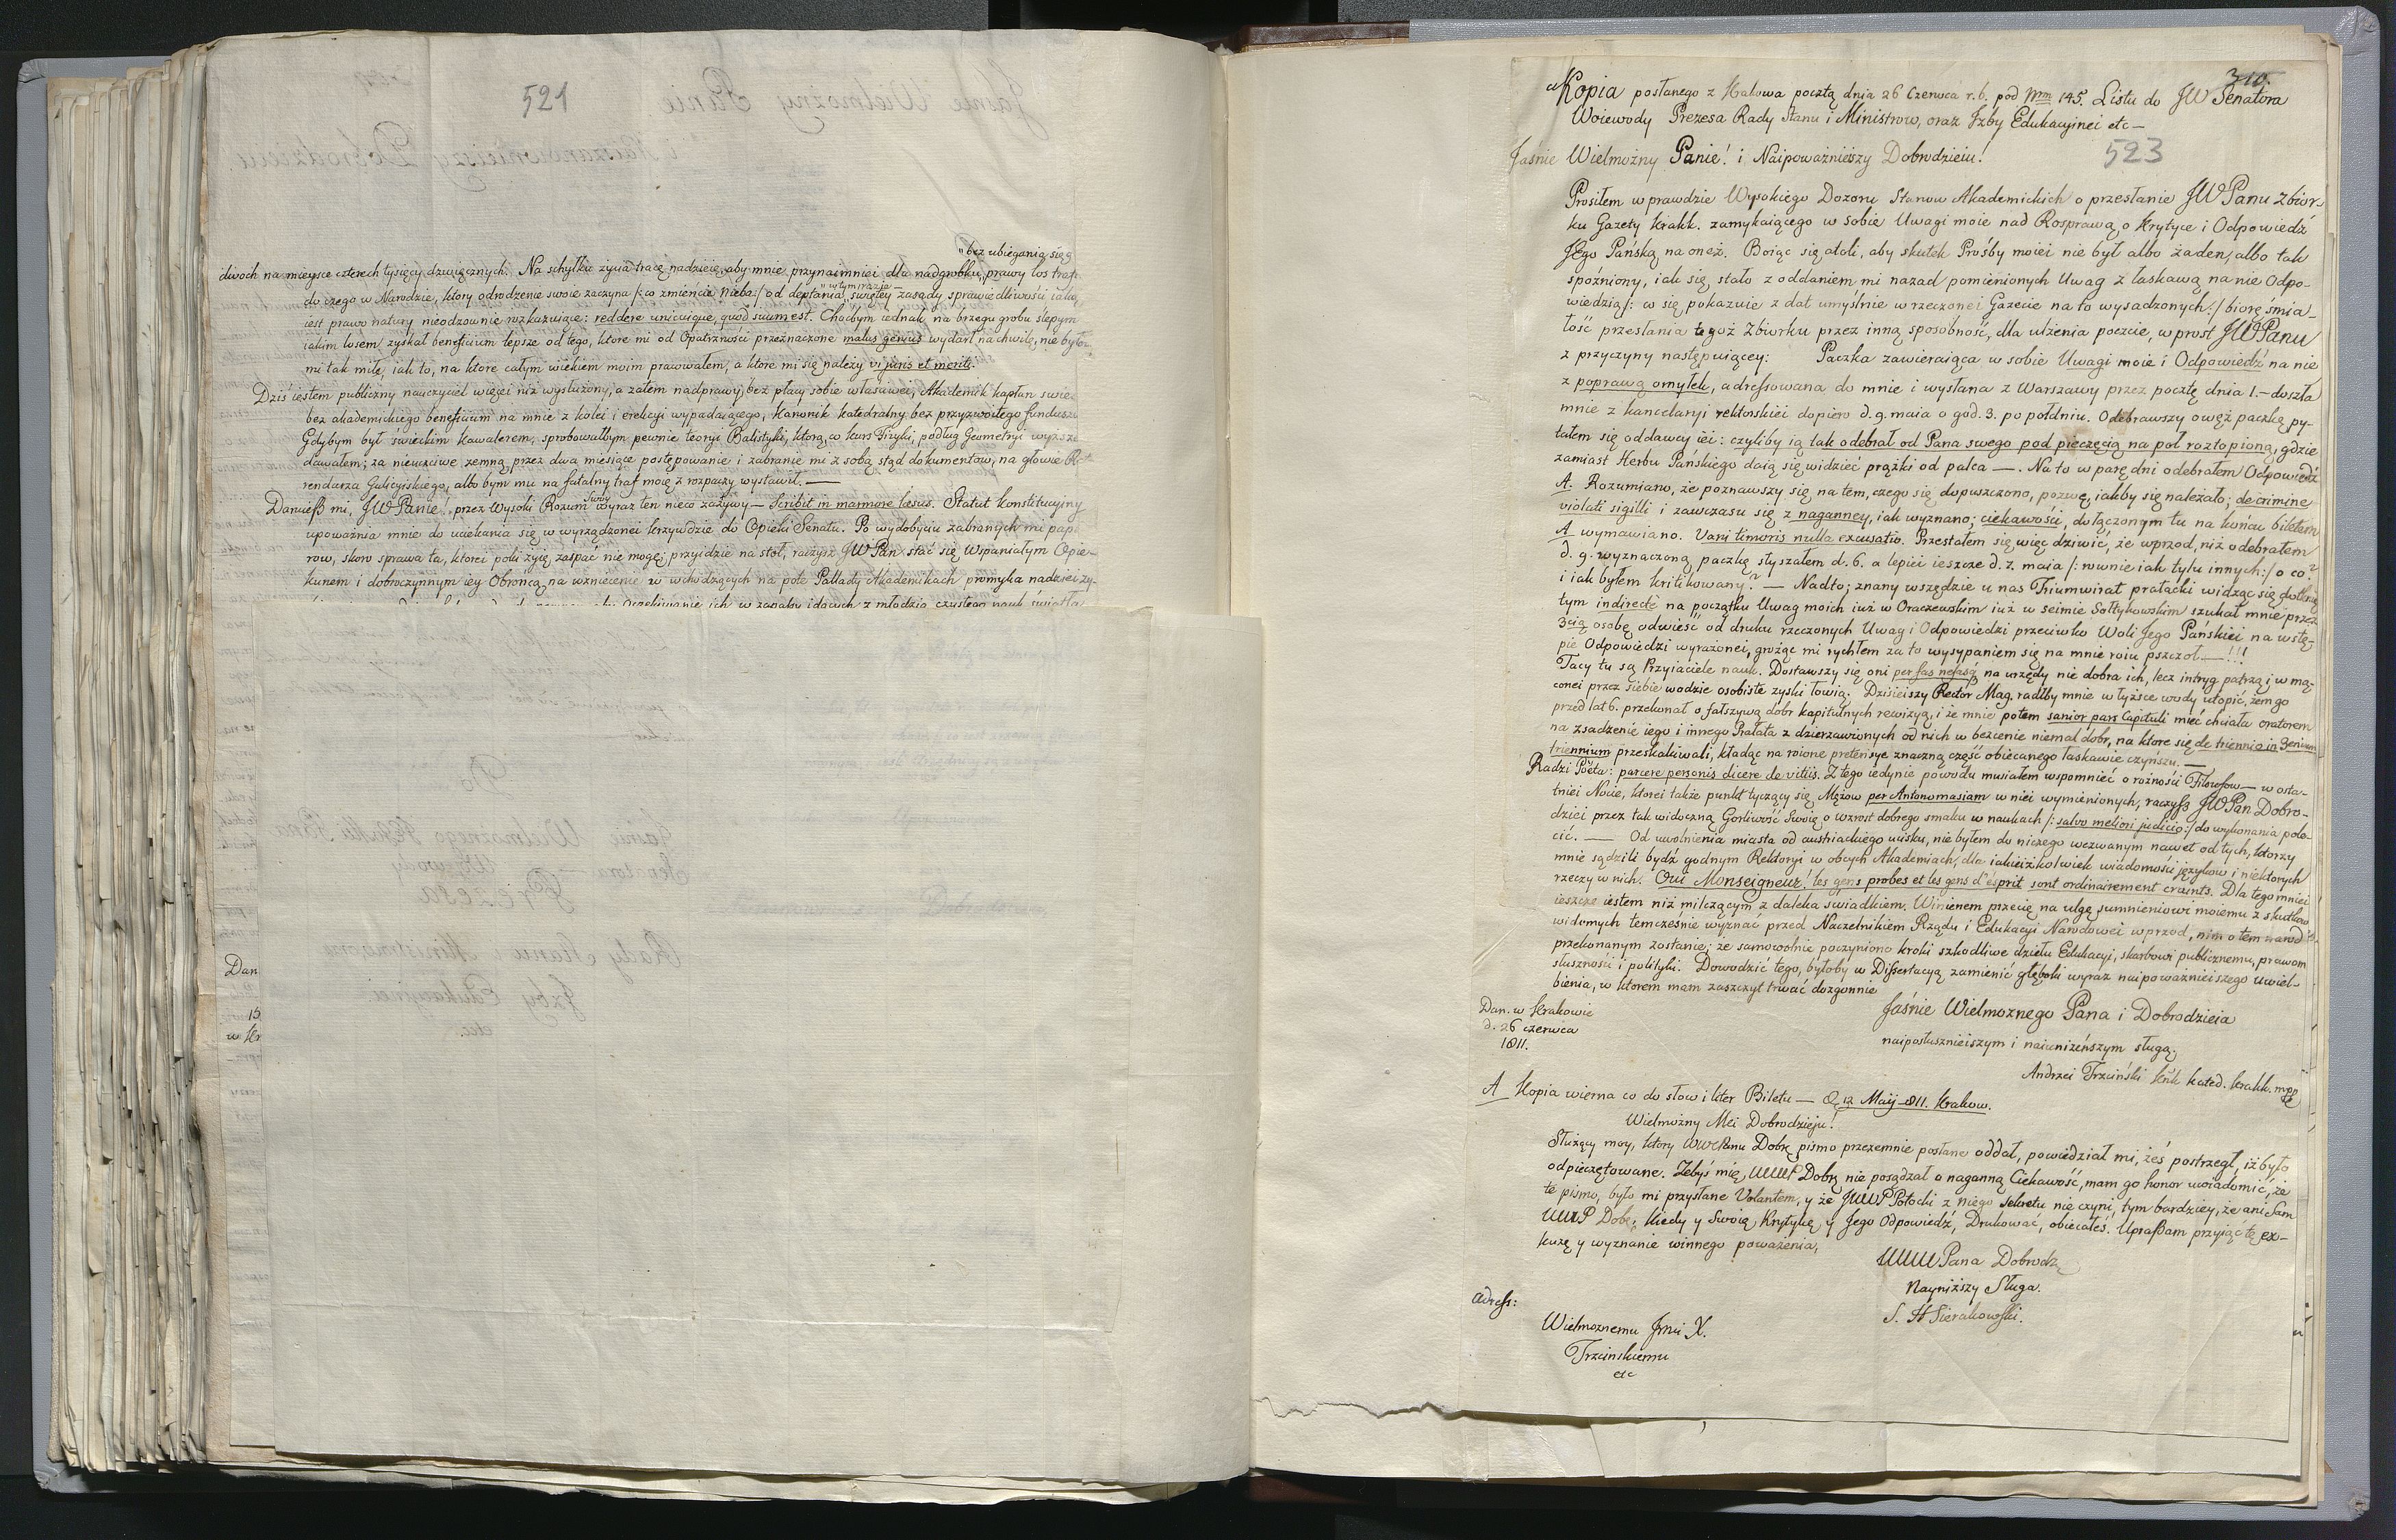 521
"bez ubiegania się
dwoch na mieysce czterech tysięcy dzwięcznych. Na schyłku życia tracę nadzieię, aby mnie przynaimniei dla nadgrobku, prawy los trafi
"w tym razie
do czego w Narodzie, ktory odrodzenie swoie zaczyna /: co zmieńcie Nieba :/ od deptania świętey zasady sprawiedliwości, iaką
iest prawo natury nieodzownie rozkazuiące: reddere unicuique, quod suum est. Choćbym iednak na brzegu grobu ślepym
iakim losem zyskał beneficium lepsze od tego, ktore mi od Opatrzności przeznaczone malus genius wydarł na chwilę, nie było
mi tak miłe, iak to, na ktore całym wiekiem moim pracowałem, a ktore mi się należy vi juris et meriti.
Dziś iestem publiczny nauczyciel więcei niż wysłużony, a zatem nadprawy, bez płacy sobie właściwei, Akademik kapłan świec
bez akademickiego beneficium na mnie z kolei i erekcyi wypadaiącego, Kanonik katedralny bez przyzwoitego funduszu
Gdybym był świeckim kawalerem, sprobowałbym pewnie teoryi Balistyki, ktorą, w kurs Fizyki, podług Geometryi wyższe
dawałem; za nieuczciwe zemną przez dwa miesiące postępowanie i zabranie mi z sobą stąd dokumentow, na głowie Re
rendarza Galicyiskiego, albo bym mu na fatalny traf moię z rozpaczy wystawił. —
Swoy
Daruiesz mi, JWPanie!, przez Wysoki Rozum wyraz ten nieco zażywy — Scribit in marmore læsus. Statut konstitucyiny
upoważnia mnie do uciekania się w wyrządzonei krzywdzie do Opieki Senatu. Po wydobyciu zabranych mi papi
row, skoro sprawa ta, ktorei poki żyię zaspać nie mogę, przyidzie na stoł, raczysz JWPan stać się Wspaniałym Opie-
kunem i dobroczynnym iey Obrońcą, na wzniecenie w wchodzących na pole Pallady Akademikach promyka nadziei zy-
Dan
15
w Kr
310.
Kopia posłanego z Krakowa pocztą dnia 26 Czerwca r.b. pod Nrm 145. Listu do JW Senatora
Woiewody Prezesa Rady Stanu i Ministrow, oraz Izby Edukacyinei etc —
523
Jaśnie Wielmożny Panie! i Naipoważnieiszy Dobrodzieiu!
Prosiłem wprawdzie Wysokiego Dozoru Stanow Akademickich o przesłanie JWPanu Zbior-
ku Gazety Krakk. zamykaiącego w sobie Uwagi moie nad Rosprawą o Krytyce i Odpowiedź
JEgo Pańską na oneż. Boiąc się atoli, aby skutek Prośby moiei nie był albo żaden, albo tak
spożniony, iak się stało z oddaniem mi nazad pomienionych Uwag z łaskawą na nie Odpo-
wiedzią /: co się pokazuie z dat umyślnie w rzeczonei Gazecie na to wysadzonych :/ biorę śmia-
łość przesłania tegoż Zbiorku przez inną sposobność, dla ulżenia poczcie, wprost JWPanu
z przyczyny następuiącey: Paczka zawieraiąca w sobie Uwagi moie i Odpowiedź na nie
z poprawą omyłek, adressowana do mnie i wysłana z Warszawy przez pocztę dnia 1. — doszła
mnie z kancelaryi rektorskiei dopiero d. 9. maia o god. 3. po połdniu. Odebrawszy owęż paczkę py-
tałem się oddawcy iei: czyliby ią tak odebrał od Pana swego pod pieczęcią na poł roztopioną, gdzie
zamiast Herbu Pańskiego daią się widzieć prążki od palca —. Na to w parę dni odebrałem Odpowiedź
A. Rozumiano, że poznawszy się na tem, czego się dopuszczono, pozwę, iakby się należało; de crimine
violati sigilli i zawczasu się z nagannej, iak wyznano; ciekawości, dołączonym tu na końcu biletem
A wymawiano. Vani timoris nulla excusatio. Przestałem się więc dziwić, że wprzod, niż odebrałem
d. 9. wyznaczoną paczkę słyszałem d. 6. a lepiei ieszcze d. 7. maia /: rownie iak tylu innych :/ o co?
i iak byłem kritikowany? — Nadto; znany wszędzie u nas Triumwirat prałacki widząc się dotknię
tym indirectè na początku Uwag moich iuż w Oraczewskim iuż w seimie Sołtykowskim szukał mnie przez
3cią osobę odwieść od druku rzeczonych Uwag i Odpowiedzi przeciwko Woli Jego Pańskiei na wstę-
pie Odpowiedzi wyrażonei, grożąc mi rychłem za to wysypaniem się na mnie roiu pszczoł — !!!
Tacy tu są Przyiaciele nauk. Dostawszy się oni per fas nefasq na urzędy nie dobra ich, lecz intryg patrzą, i w mą-
conei przez siebie wodzie osobiste zyski łowią. Dzisieiszy Rector Mag. radłby mnie w łyżce wody utopić, żem go
przed lat 6. przekonał o fałszywą dobr kapitulnych rewizyą, i że mnie potem sanior pars Capituli mieć chciała oratorem
na zsadzenie iego i innego Prałata z dzierzawionych od nich w bezcenie niemal dobr, na ktore się de triennio in
triennium przeskakiwali, kładąc na roione pretensye znaczną część obiecanego łaskawie czynszu. —
Radzi Poëta: parcere personis dicere de vitiis. Z tego iedynie powodu musiałem wspomnieć o rożności Filozofow — w osta-
tniei Nocie, ktorei także punkt tyczący się Mężow per Antonomasiam w niei wymienionych, raczysz JWPan Dobro-
dziei przez tak widoczną Gorliwość Swoię o wzrost dobrego smaku w naukach /: salvo meliori judicio :/ do wykonania pole-
cić. — Od uwolnienia miasta od austriackiego ucisku, nie byłem do niczego wezwanym nawet od tych, ktorzy
mnie sądzili bydź godnym Rektoryi w obcych Akademiach, dla iakieiżkolwiek wiadomości języków i niektorych
rzeczy w nich. Oui Monseigneur! les gens probes et les gens d'esprit sont ordinairement craints. Dla tego mniei
ieszcze iestem niż milczącym z daleka świadkiem. Winienem przecię na ulgę sumnieniowi moiemu z skutkow
widomych temcześnie wyznać przed Naczelnikiem Rządu i Edukacyi Narodowei wprzod, nim o tem narod
przekonanym zostanie; że samowolnie poczyniono kroki szkodliwe dziełu Edukacyi, skarbowi publicznemu, prawom
słuszności i polityki. Dowodzić tego, byłoby w Dissertacyą zamienić głęboki wyraz naipoważnieiszego uwiel-
bienia, w ktorem mam zaszczyt trwać dozgonnie
Jaśnie Wielmożnego Pana i Dobrodzieia
Dan. w Krakowie
d. 26 czerwca
1811.
naiposłusznieiszym i naiuniżeńszym sługą,
Andrzei Trzciński Knk kated. krakk. mpp
A Kopia wierna co do słow i liter Biletu — D. 12 Maij 811. Krakow.
Wielmożny Mci Dobrodzieju!
Służący moy, ktory WWPanu Dobrę pismo przezemnie posłane oddał, powiedział mi, żeś postrzegł, iż było
odpieczętowane. Żebyś mię, WWP Dobrę nie posądzał o naganną Ciekawość, mam go honor uwiadomić, że
te pismo, było mi przysłane Volantem, y że JWWP Potocki z niego sekretu nie czyni, tym bardziey, że ani Sam
WWP Dobr. kiedy y Swoią Krytykę, y Jego Odpowiedź, Drukować, obiecałeś. Upraszam przyiąć tę ex-
kuzę y wyznanie winnego poważenia,
WWW Pana Dobrodz.
Nayniższy Sługa.
S. H Sierakowski.
Adress:
Wielmoznemu Jmci X.
Trzcinskiemu
etc